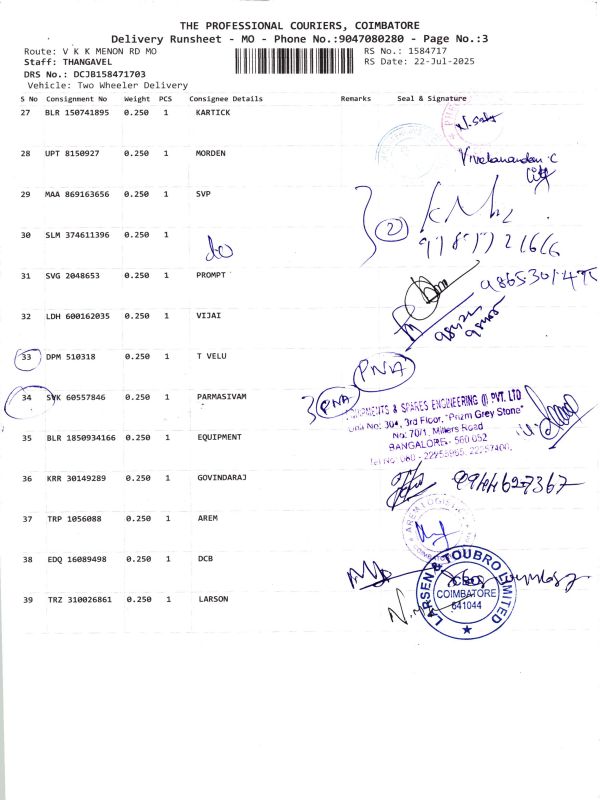 THE PROFESSIONAL COURIERS, COIMBATORE
Delivery Runsheet - MO - Phone No.:9047080280 - Page No.:3
Route: V K K MENON RD MO RS No.: 1584717
Staff: THANGAVEL RS Date: 22-Jul-2025
DRS No.: DCJB158471703
Vehicle: Two Wheeler Delivery
S No Consignment No Weight PCS Consignee Details Remarks Seal & Signature
27 BLR 150741895 0.250 1 KARTICK
28 UPT 8150927 0.250 1 MORDEN
Vivekanandan.C
29 MAA 869163656 0.250 1 SVP
2
30 SLM 374611396 0.250 1 do
31 SVG 2048653 0.250 1 PROMPT
32 LDH 600162035 0.250 1 VIJAI
33 DPM 510318 0.250 1 T VELU PNA
34 SVK 60557846 0.250 1 PARMASIVAM PNA
EQUIPMENTS & SPARES ENGINEERING (I) PVT. LTD
Unit No: 304, 3rd Floor, "Prizm Grey Stone"
No: 70/1, Millers Road
BANGALORE - 560 052
35 BLR 1850934166 0.250 1 EQUIPMENT
36 KRR 30149289 0.250 1 GOVINDARAJ 9944627367
37 TRP 1056088 0.250 1 AREM
AREM LOGISTICS
38 EDQ 16089498 0.250 1 DCB
39 TRZ 310026861 0.250 1 LARSON
LARSEN & TOUBRO LIMITED
COIMBATORE
641044